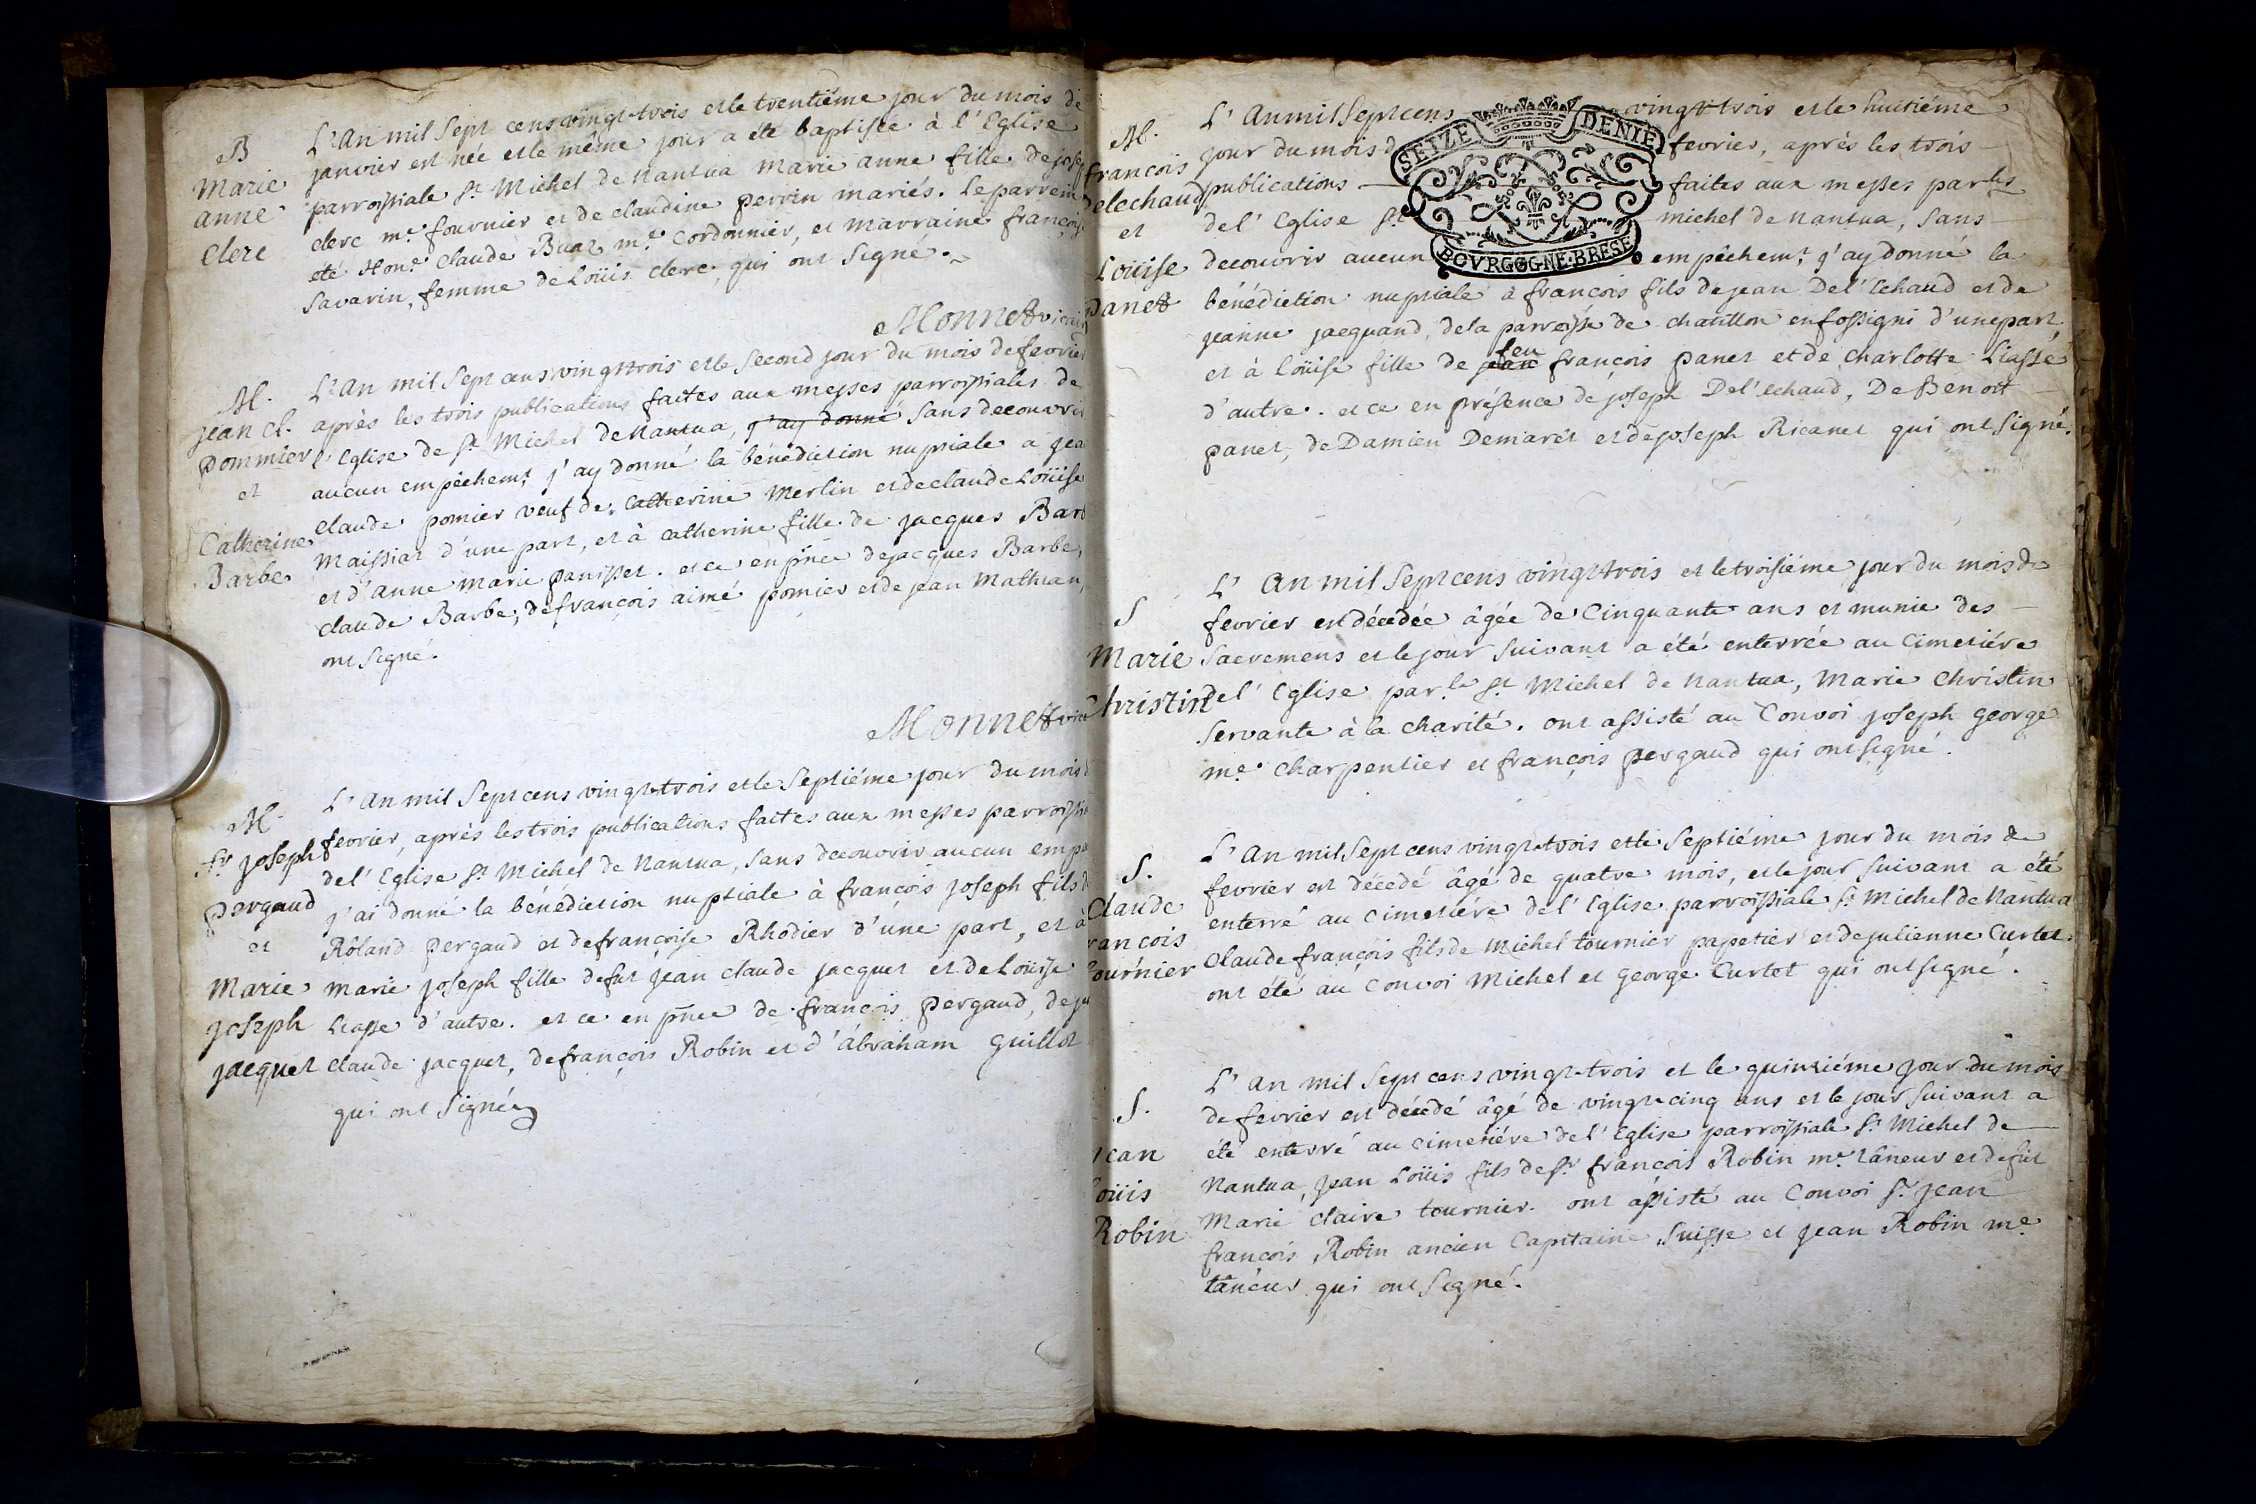 B
Marie
anne
Clerc
L'An mil Sept cens vingt-trois et le trentiéme jour du mois de
janvier est née et le même jour a été baptisée à l'Eglise
parroissiale St Michel de Nantua Marie anne fille de josep
clerc me fournier et de claudine perrin mariés. Le parrein
été Hone Claude Buat me Cordonnier, et marraine françoise
Savarin, femme de Loüis clerc, qui ont Signé.
Monnet vicaire
M.
jean cl.
pommier
et
Catherine
Barbe
L'An mil Sept cens vingt trois et le Second jour du mois de fevrier
après les trois publications faites aux messes parroissiales de
l'Eglise de St Michel de Nantua, j'ay donné Sans decouvrir
aucun empêchemt j'ay donné la bénédiction nuptiale a jea
Claude pomier veuf de Catherine Merlin et de claude Loüise
Maissiat d'une part, et à catherine fille de jacques Barb
et d'anne marie panisset. et ce en pnce de jacques Barbe,
claude Barbe, de françois aimé pomier et de jean Mathian,
ont Signé.
Monnet vica
M.
fr. joseph
pergaud
et
Marie
joseph
jacquet
L'an mil Sept cens vingt-trois et le Septiéme jour du mois d
fevrier, après les trois publications faites aux messes parroissia
de l'Eglise St Michel de Nantua, Sans decouvrir aucun empe
j'ai donné la bénédiction nuptiale à françois joseph fils d
Roland pergaud et de françoise Rhodier d'une part, et à
marie joseph fille de fut jean claude jacquet et de Loüise
Liasse d'autre. et ce en pnce de françois pergaud, de je
claude jacquet, de françois Robin et d'abraham Guillot
qui ont Signé
M.
françois
delechaud
et
Loüise
panet
SEIZE DENIE
BOVRGOGNE·BRESE
L'An mil Sept cens vingt-trois et le huitiéme
jour du mois d fevrier, après les trois
publications faites aux messes parles
de l'Eglise St michel de Nantua, Sans
decouvrir aucun empêchemt j'ay donné la
bénédiction nuptiale à françois fils de jean Del'Echaud et de
jeanne jacquand, de la parroisse de chatillon en fossigni d'une part,
et à Loüise fille de jean feu françois panet et de Charlotte Liasse
d'autre. et ce en présence de joseph Del'Echaud, De Benoit
panet, de Damien Demaret et de joseph Ricanet qui ont Signé.
S
Marie
Christin
L'An mil Sept cens vingt-trois et le troisiéme jour du mois de
fevrier est décedée âgée de Cinquante ans et munie des
Sacremens et le jour Suivant a été enterrée au Cimetiére
del'Eglise par.le St Michel de Nantua, Marie Christin
Servante à la charité. ont assisté au Convoi joseph George
me charpentier et françois pergaud qui ont Signé.
S.
Claude
rancois
tournier
L'An mil Sept cens vingt-trois et le Septiéme jour du mois de
fevrier est décedé âgé de quatre mois, et le jour Suivant a été
enterré au cimetiére de l'Eglise parroissiale St Michel de Nantua
Claude françois fils de Michel tournier papetier et de julienne Curtet.
ont été au Convoi Michel et George Curtet qui ont signé.
S.
jean
Loüis
Robin
L'An mil Sept cens vingt-trois et le quinziéme jour du mois
de fevrier est décedé âgé de vingt-cinq ans et le jour Suivant a
éte enterré au cimetiére de l'Eglise parroissiale St Michel de
Nantua, jean Loüis fils de Sr françois Robin me tâneur et de fût
Marie Claire tournier. ont assisté au Convoi Sr jean
françois Robin ancien Capitaine Suisse et jean Robin me
tâneur qui ont Signé.